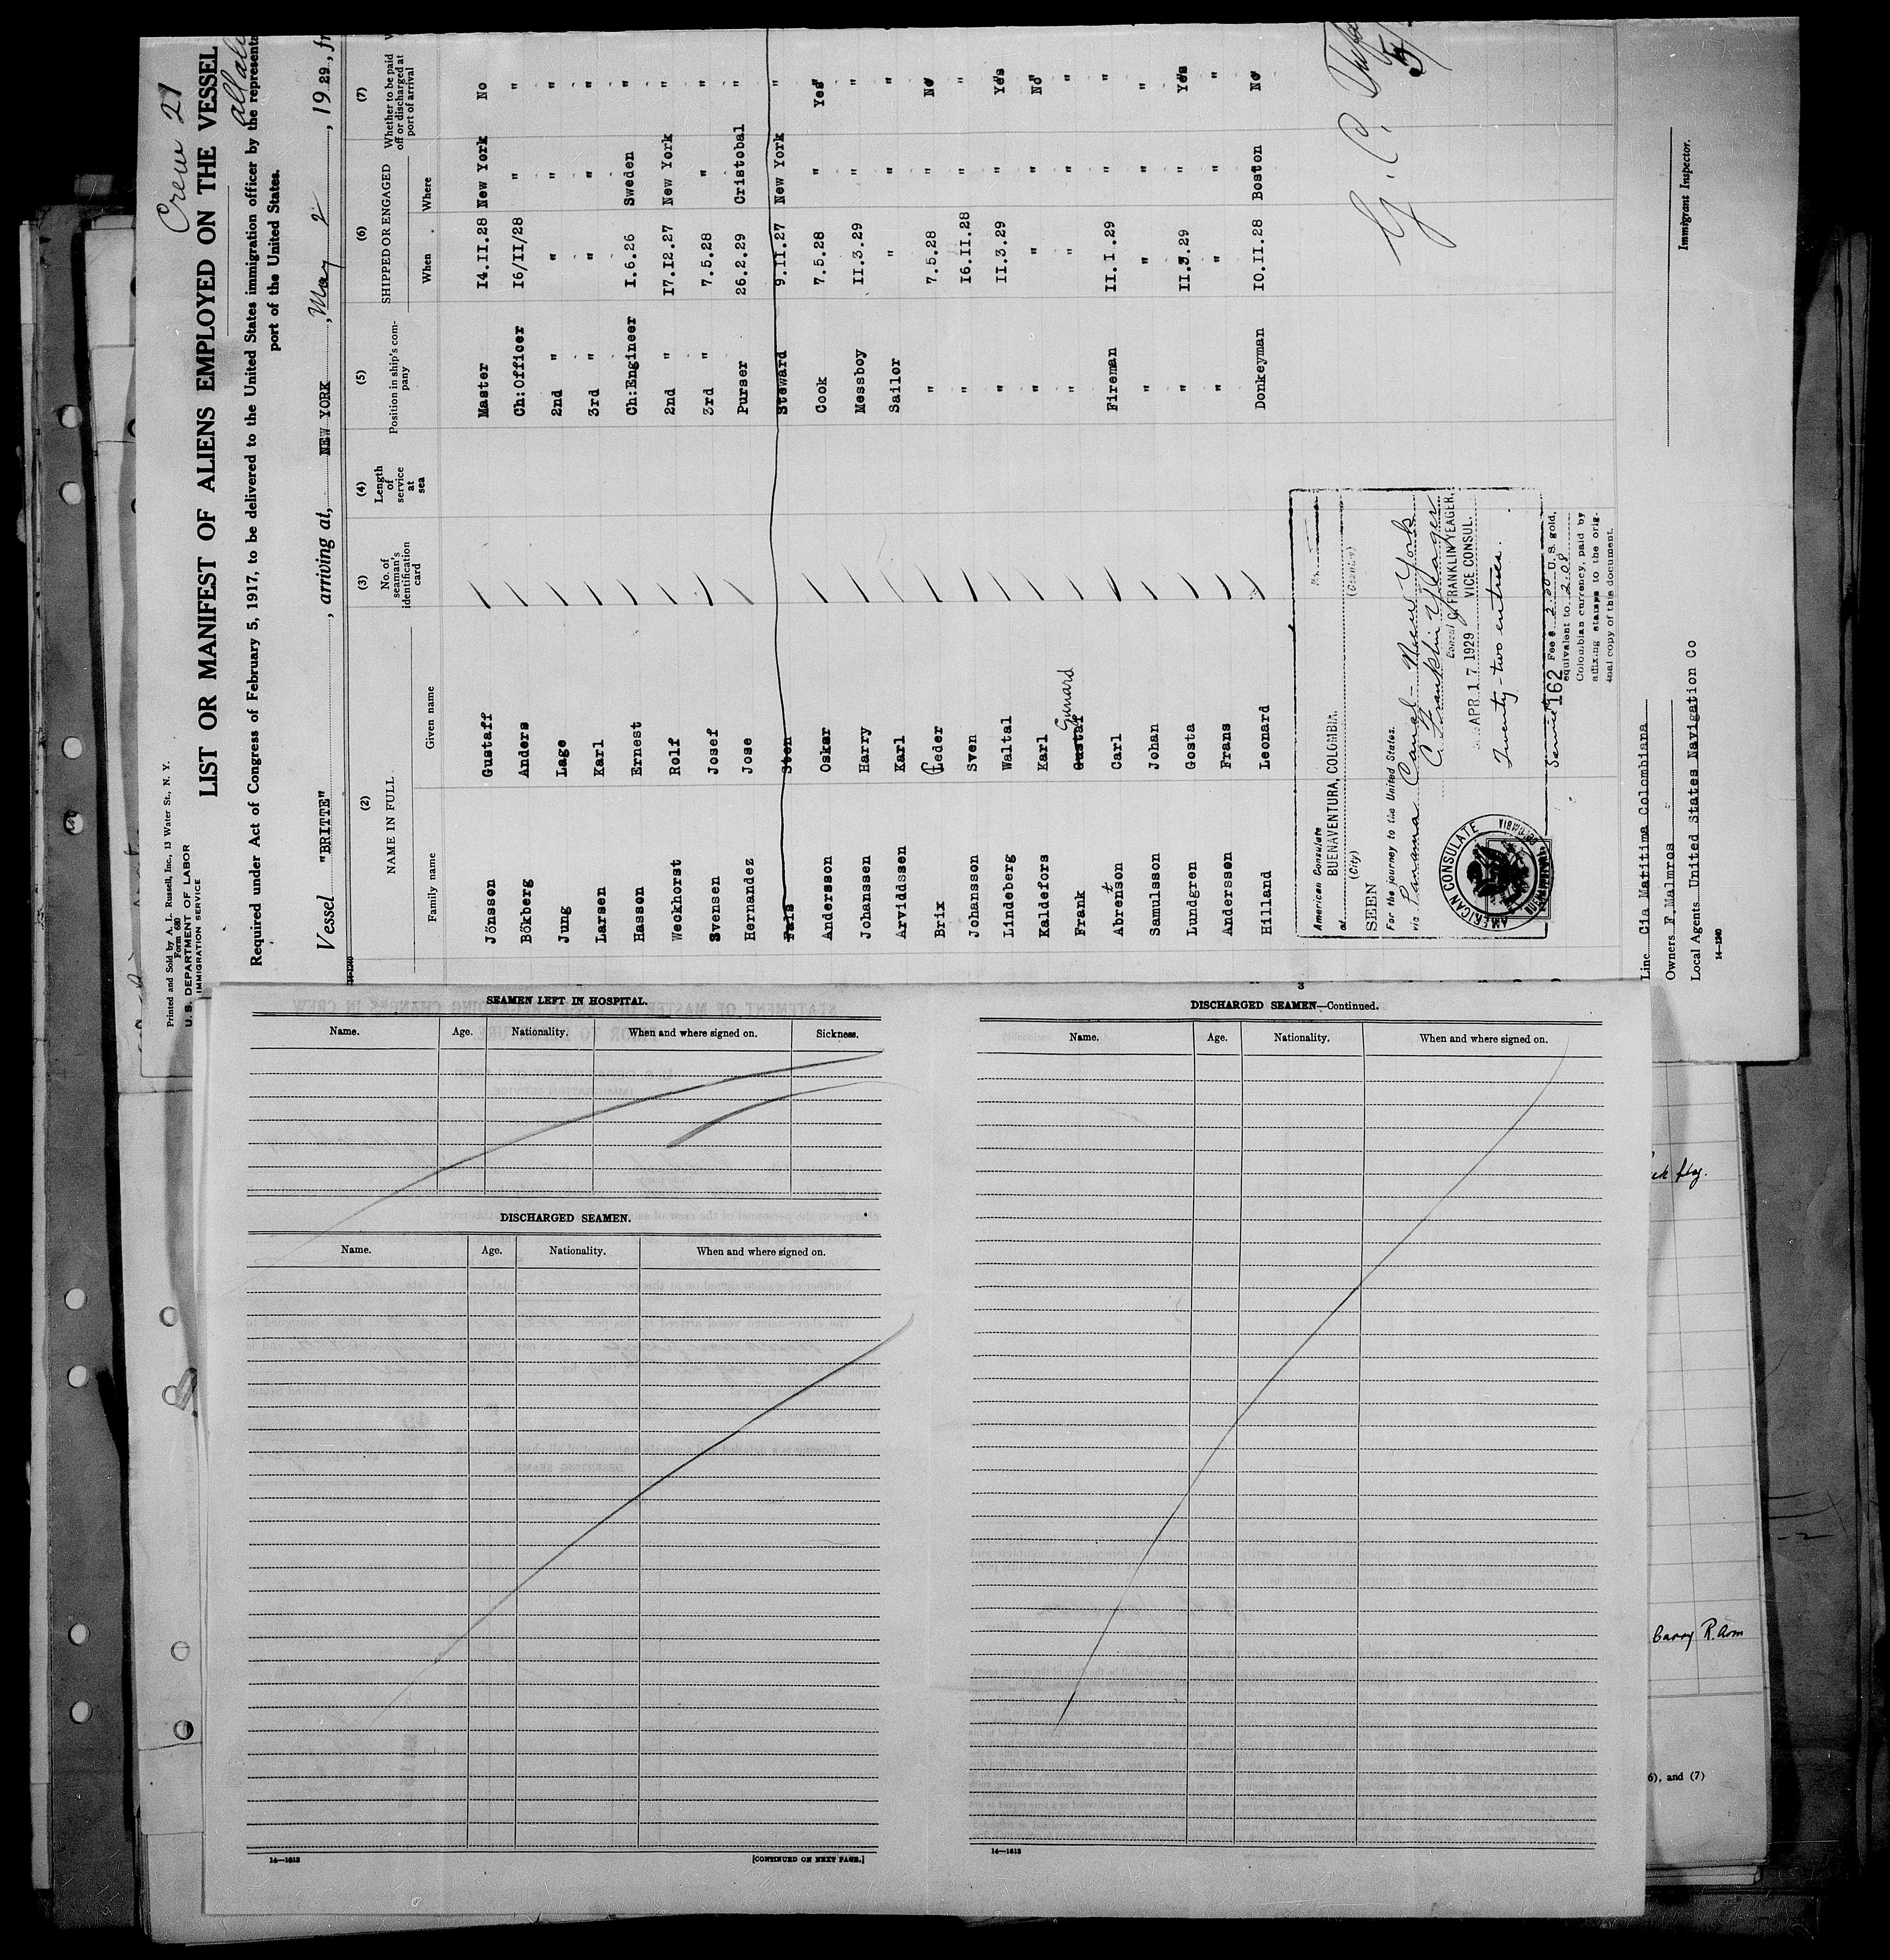 Crew 21
Printed and Sold by A. L. Russell, Inc., 13 Water St., N. Y.
Form 680
U. S. DEPARTMENT OF LABOR
IMMIGRATION SERVICE
LIST OR MANIFEST OF ALIENS EMPLOYED ON THE VESSEL
Required under Act of Congress of February 5, 1917, to be delivered to the United States immigration officer by the representa
port of the United States.
Vessel "BRITTE", arriving at, NEW YORK, May 2, 1929, fr
14-1240
(2) (3) (4) (5) (6) (7)
NAME IN FULL No. of seaman's identification card Length of service at sea Position in ship's company SHIPPED OR ENGAGED Whether to be paid off or discharged at port of arrival
Family name Given name When Where
Jönsson Gustaff Master 14.II.28 New York No
Bökberg Anders Ch:Officer 16/II/28 " "
Jung Lage 2nd " " " "
Larsen Karl 3rd " " " "
Hassen Ernest Ch:Engineer I.6.26 Sweden "
Weekhorst Rolf 2nd " 17.I2.27 New York "
Svensen Josef 3rd " 7.5.28 " "
Hernandez Jose Purser 26.2.29 Cristobal "
Fals Sten Steward 9.II.27 New York "
Andersson Oskar Cook 7.5.28 " Yes
Johanssen Harry Messboy II.3.29 " "
Arviddssen Karl Sailor " " "
Brix Peder " 7.5.28 " No
Johansson Sven " I6.II.28 " "
Lindeberg Waltal " II.3.29 " Yes
Kaldefors Karl " " " No
Frank Gustaf Gunnard " " " "
Abrenson Carl Fireman II.I.29 " "
Samulsson Johan " " " "
Lundgren Gosta " II.3.29 " Yes
Anderssen Frans " " " "
Hilland Leonard Donkeyman I0.II.28 Boston No
American Consulate
at BUENAVENTURA, COLOMBIA.
(City) (Country)
SEEN
For the journey to the United States.
via Panama Canal - New York
C. Franklin Yeager
Consul C. FRANKLIN YEAGER,
VICE CONSUL.
APR. 17 1929
Twenty-two entries.
AMERICAN CONSULATE
Service 162 Fee $ 2.00 U. S. gold,
equivalent to 2.08
Colombian currency, paid by
affixing stamps to the orig-
inal copy of this document.
Line Cia Matitima Colombiana
Owners F.Malmros
Local Agents United States Navigation Co
14-1240
Immigrant Inspector.
SEAMEN LEFT IN HOSPITAL.
Name. Age. Nationality. When and where signed on. Sickness.
DISCHARGED SEAMEN.
Name. Age. Nationality. When and where signed on.
14—1613
[CONTINUED ON NEXT PAGE.]
DISCHARGED SEAMEN—Continued.
Name. Age. Nationality. When and where signed on.
14—1613
Barry R. Arm
6), and (7)